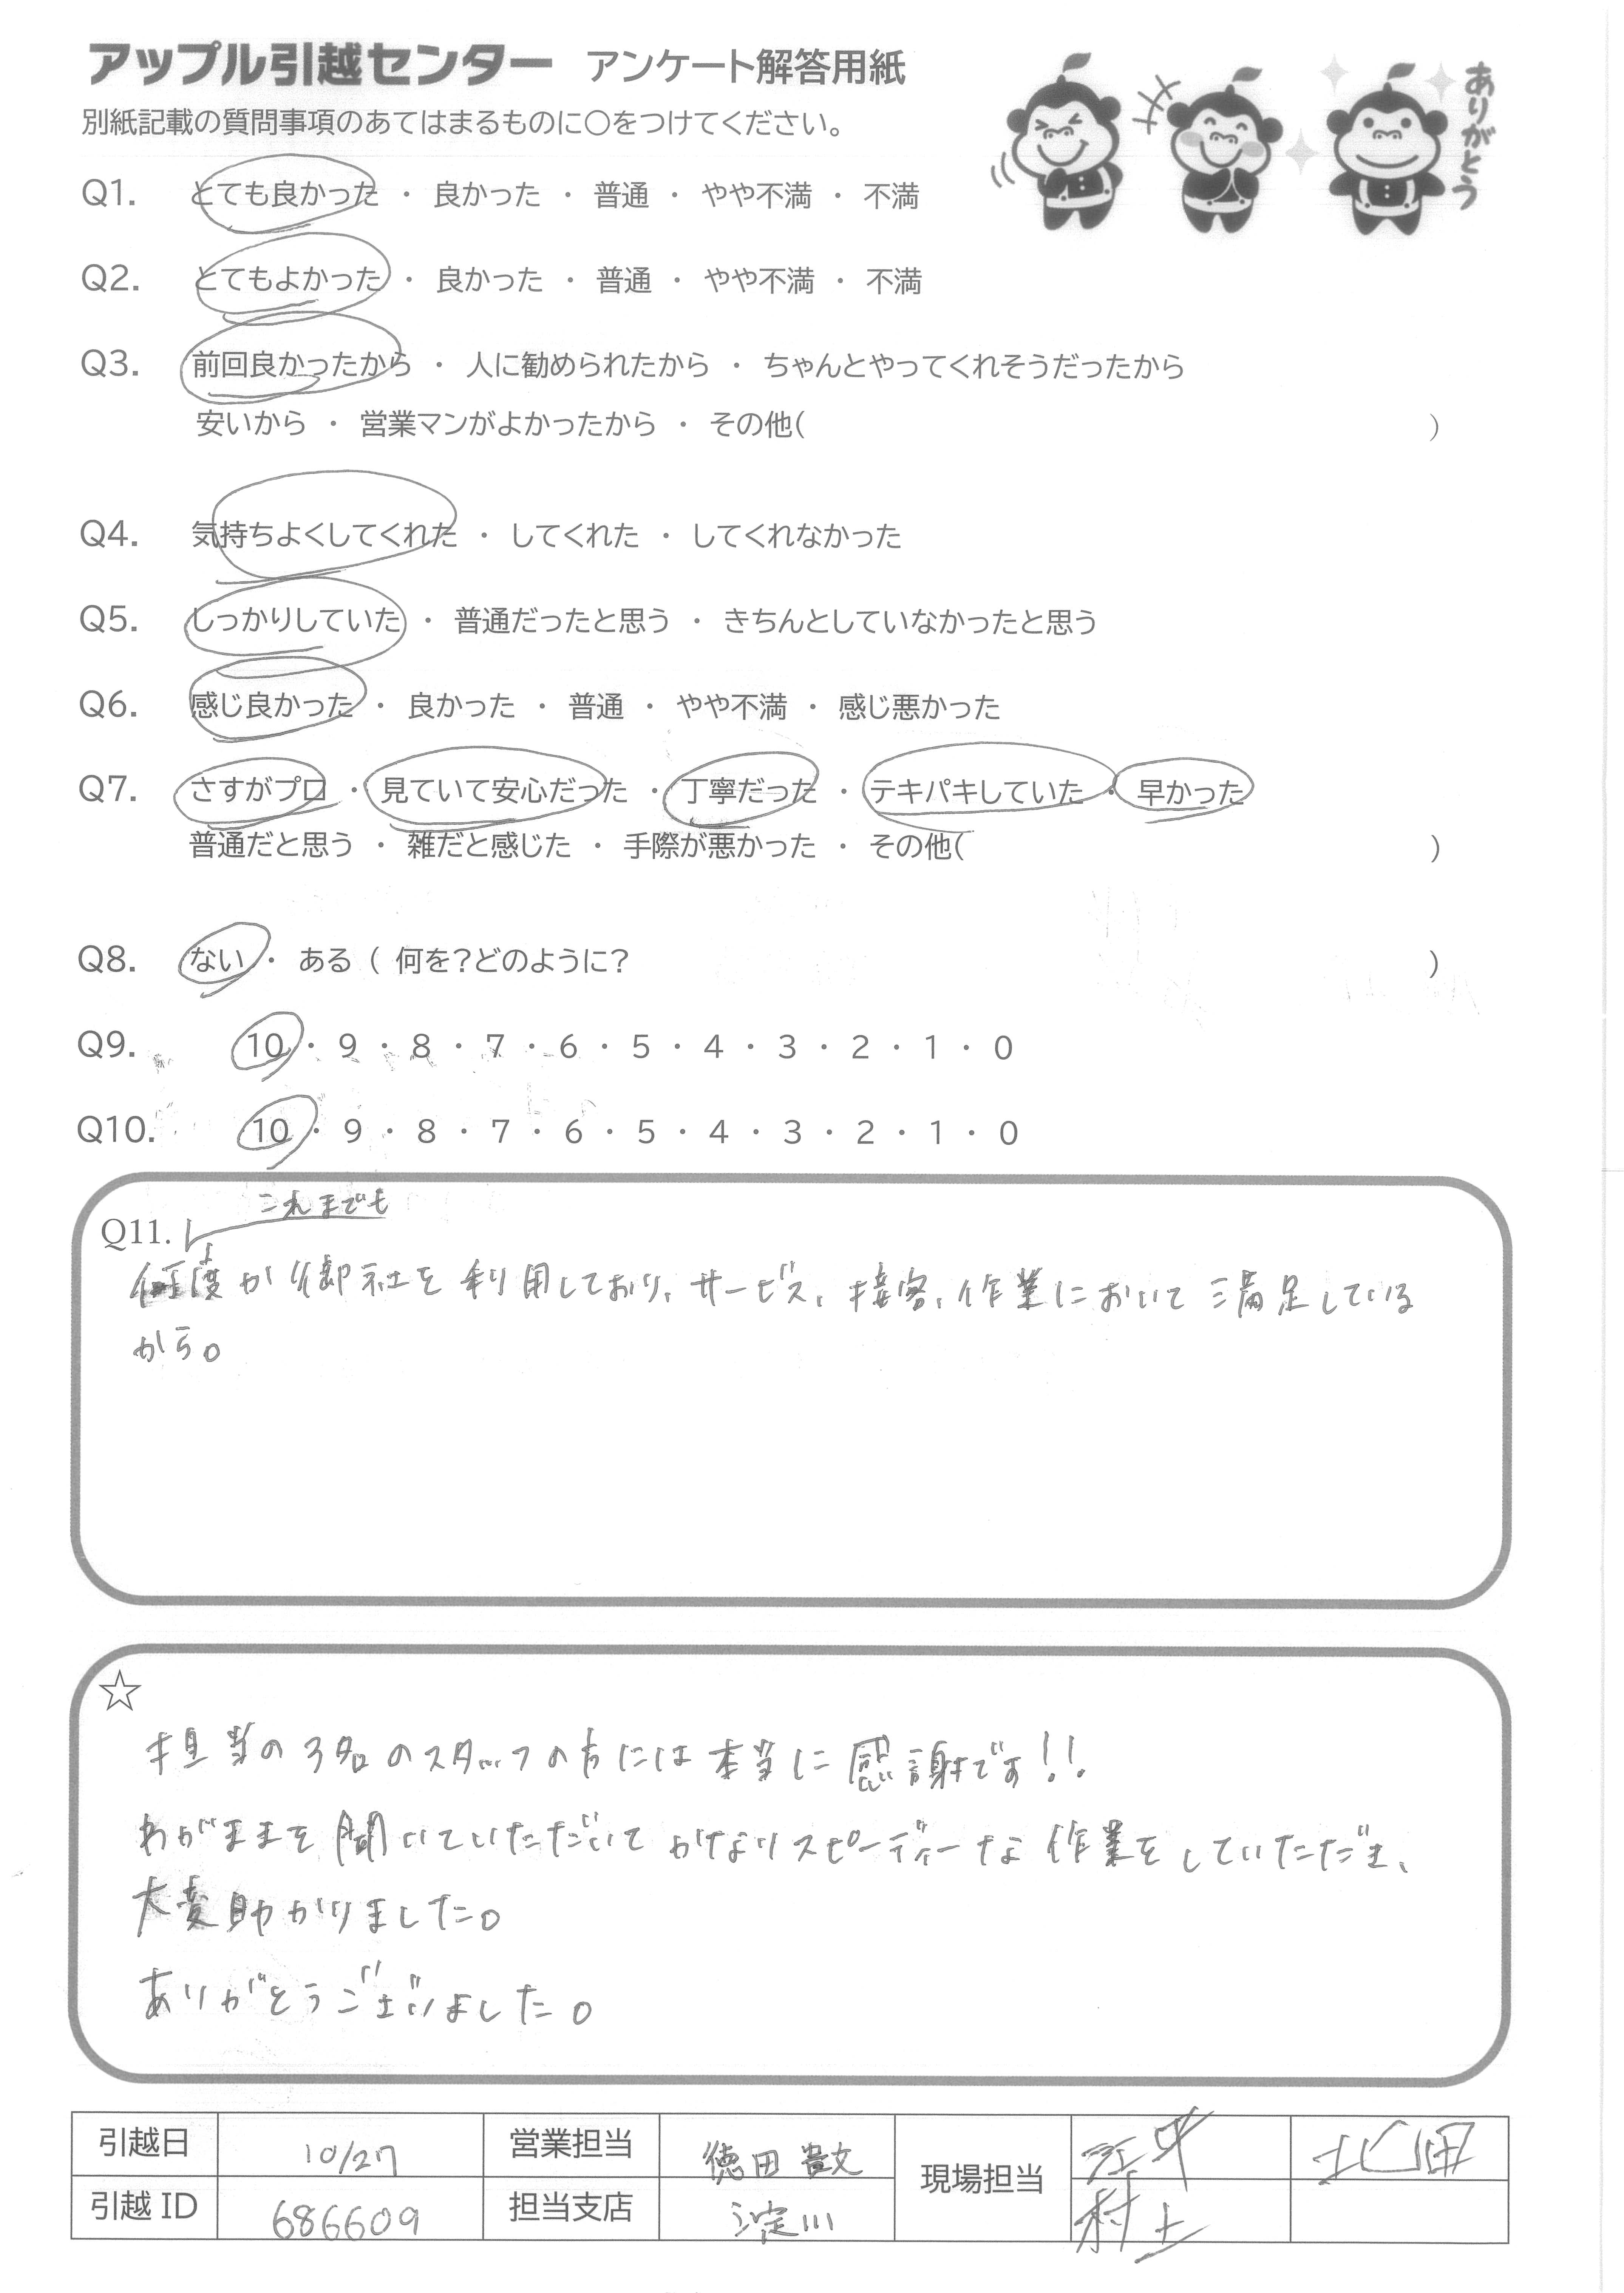 アップル引越センター アンケート解答用紙
別紙記載の質問事項のあてはまるものに○をつけてください。
ありがとう
Q1. とても良かった ・ 良かった ・ 普通 ・ やや不満 ・ 不満
Q2. とてもよかった ・ 良かった ・ 普通 ・ やや不満 ・ 不満
Q3. 前回良かったから ・ 人に勧められたから ・ ちゃんとやってくれそうだったから
安いから ・ 営業マンがよかったから ・ その他( )
Q4. 気持ちよくしてくれた ・ してくれた ・ してくれなかった
Q5. しっかりしていた ・ 普通だったと思う ・ きちんとしていなかったと思う
Q6. 感じ良かった ・ 良かった ・ 普通 ・ やや不満 ・ 感じ悪かった
Q7. さすがプロ ・ 見ていて安心だった ・ 丁寧だった ・ テキパキしていた ・ 早かった
普通だと思う ・ 雑だと感じた ・ 手際が悪かった ・ その他( )
Q8. ない ・ ある ( 何を?どのように? )
Q9. 10 ・ 9 ・ 8 ・ 7 ・ 6 ・ 5 ・ 4 ・ 3 ・ 2 ・ 1 ・ 0
Q10. 10 ・ 9 ・ 8 ・ 7 ・ 6 ・ 5 ・ 4 ・ 3 ・ 2 ・ 1 ・ 0
これまでも
Q11.
何度か御社を利用しており、サービス、接客、作業において満足している
から。
☆
担当の3名のスタッフの方には本当に感謝です!!
わがままを聞いていただいてかなりスピーディーな作業をしていただき、
大変助かりました。
ありがとうございました。
引越日 10/27 営業担当 徳田 貴文 現場担当 北田
引越 ID 686609 担当支店 淀川 村上